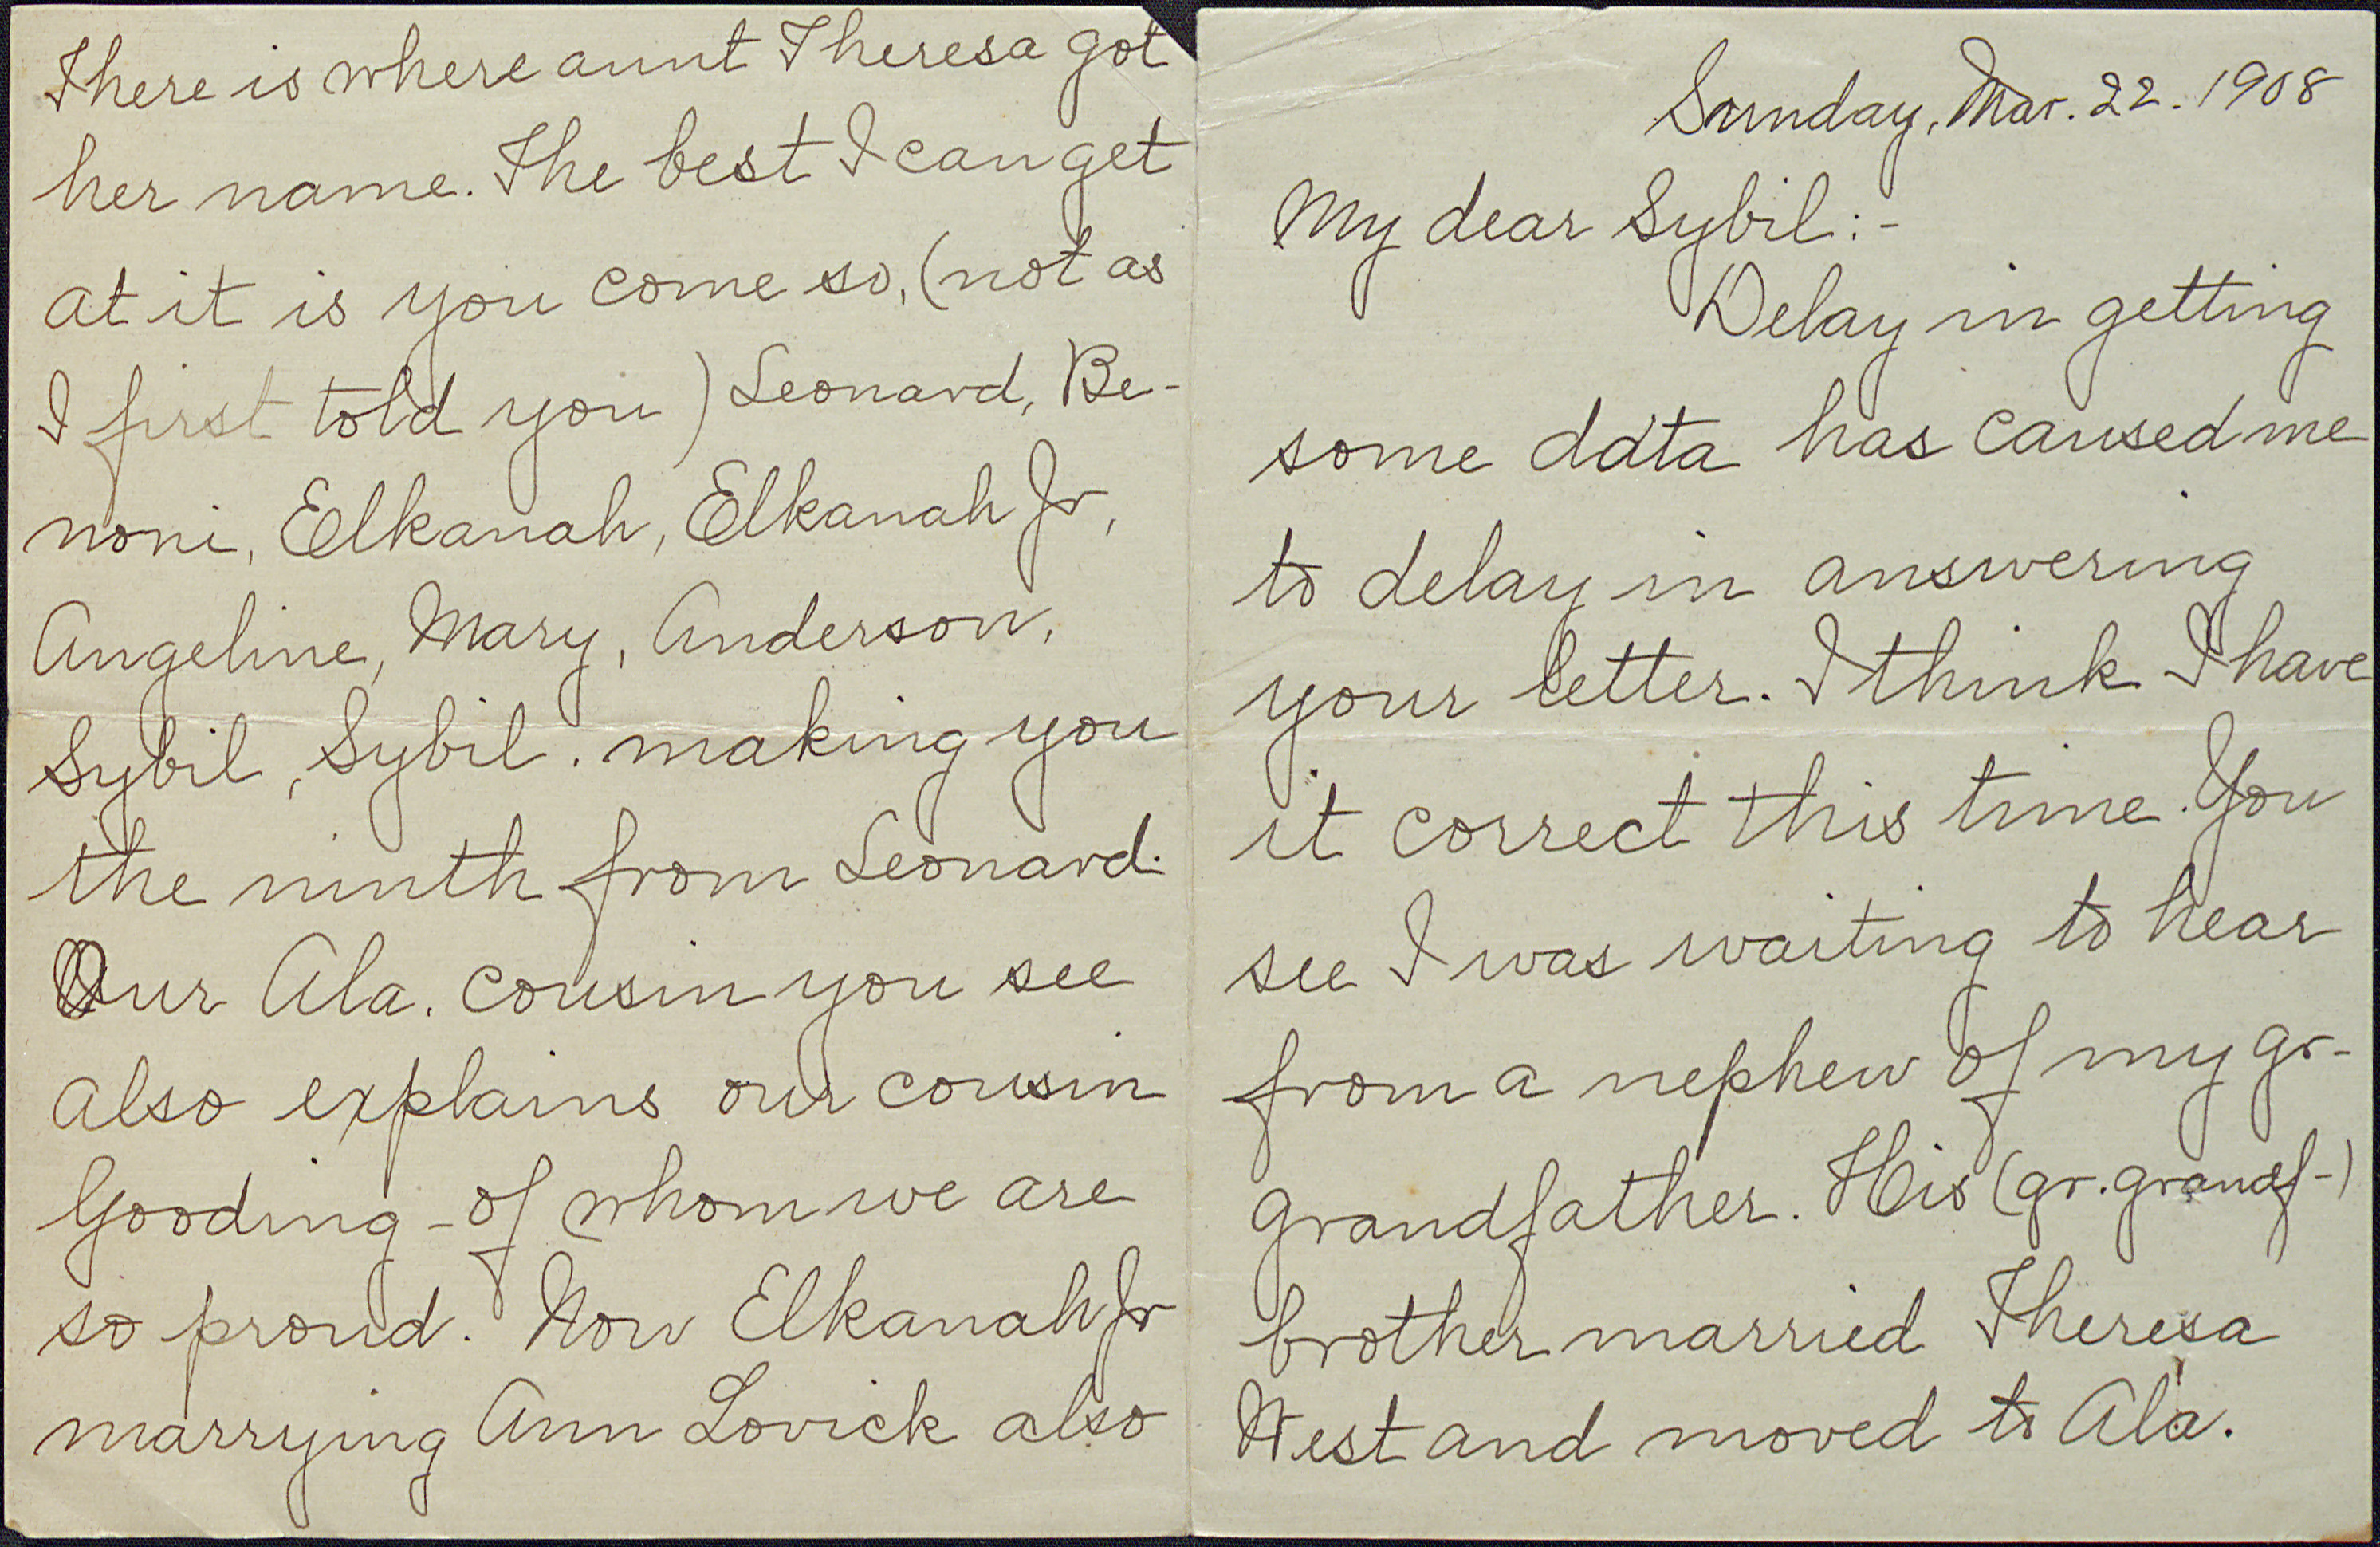 Sunday, Mar. 22. 1908
My dear Sybil:-
Delay in getting
some data has caused me
to delay in answering
your letter. I think I have
it correct this time. You
see I was waiting to hear
from a nephew of my gr-
grandfather. His (gr. grandf-)
brother married Theresa
West and moved to Ala.
There is where aunt Theresa got
her name. The best I can get
at it is you come so, (not as
I first told you) Leonard, Be-
noni, Elkanah, Elkanah Jr,
Angeline, Mary, Anderson,
Sybil, Sybil. making you
the ninth from Leonard.
Our Ala. cousin you see
also explains our cousin
Gooding - of whom we are
so proud. Now Elkanah Jr
marrying Ann Lovick also